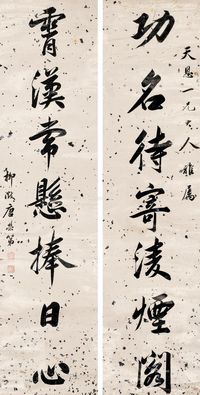 天恩一兄大人雅屬
功名待寄淩煙閣
霄漢常懸捧日心